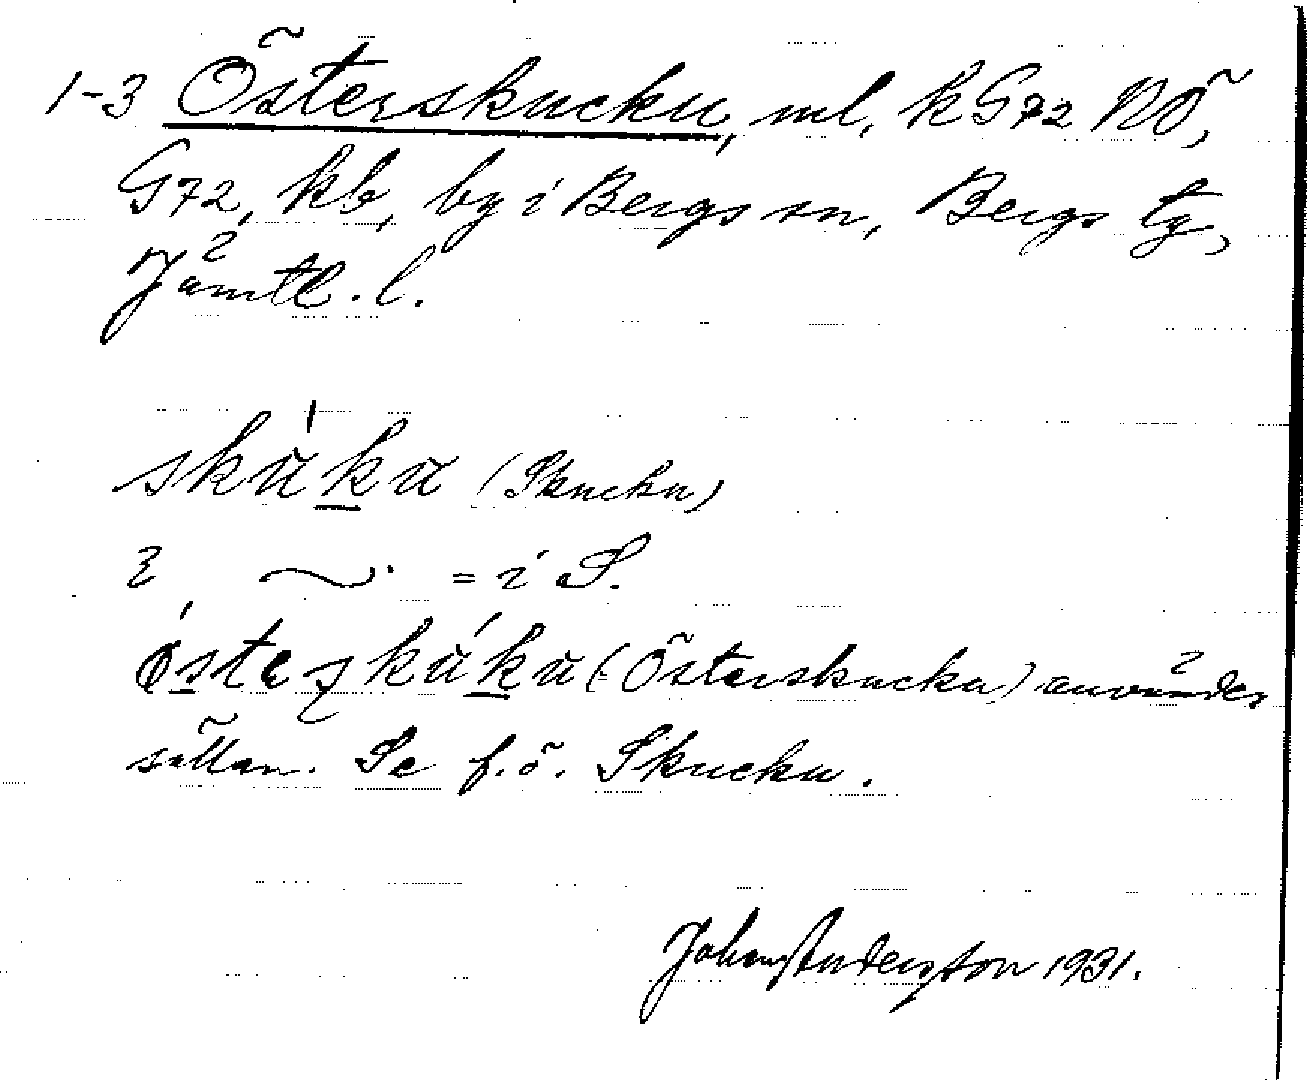 1-3 Österskucku, ml, k G72 NÖ,
G72, kb, by i Bergs sn, Bergs tg,
Jämtl. l.
skùku (Skucku)
2 ~ = i S.
östeskùku (Österskucku) användes
sällan. Se f.ö. Skucku.
Johan Anderson 1931.